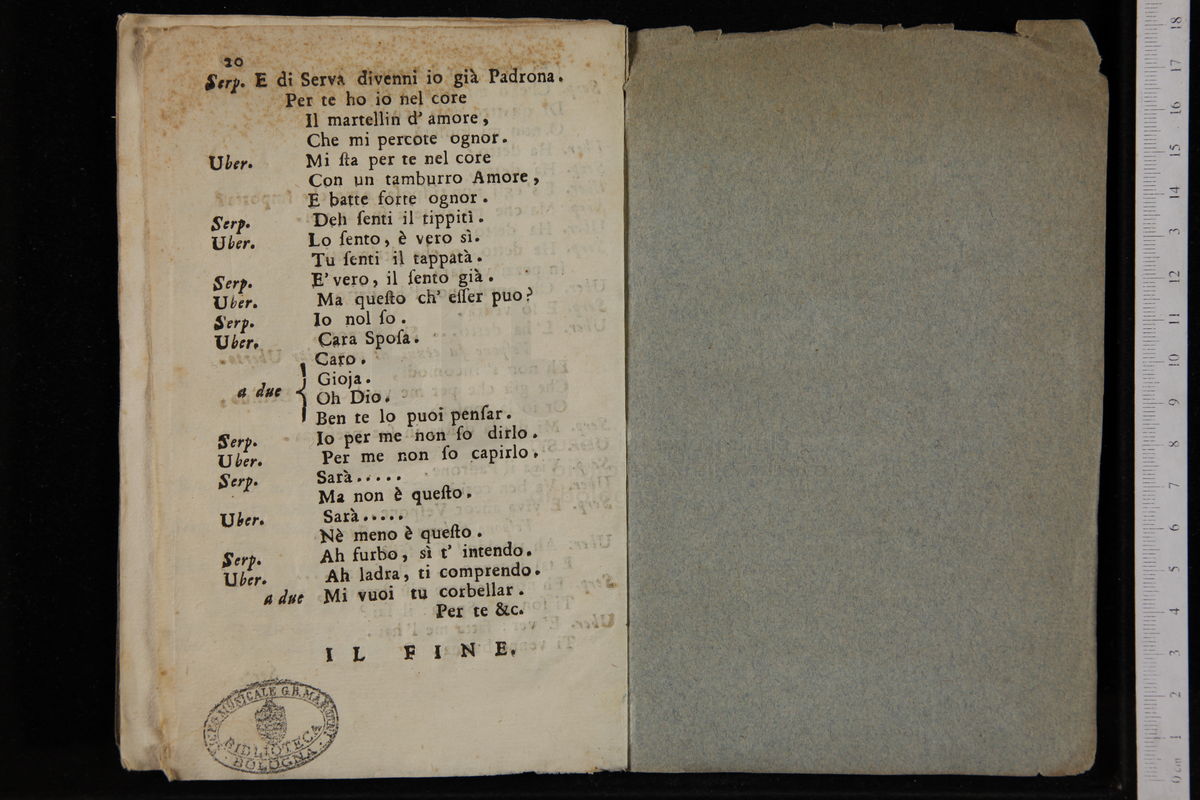 20
Serp. E di Serva divenni io già Padrona.
Per te ho io nel core
Il martellin d' amore,
Che mi percote ognor.
Uber. Mi ſta per te nel core
Con un tamburro Amore,
E batte forte ognor.
Serp. Deh ſenti il tippitì.
Uber. Lo ſento, è vero sì.
Tu ſenti il tappatà.
Serp. E' vero, il ſento già.
Uber. Ma queſto ch' eſſer puo?
Serp. Io nol ſo.
Uber. Cara Spoſa.
Caro.
a due { Gioja.
Oh Dio.
Ben te lo puoi penſar.
Serp. Io per me non ſo dirlo.
Uber. Per me non ſo capirlo.
Serp. Sarà.....
Ma non è queſto.
Uber. Sarà.....
Nè meno è queſto.
Serp. Ah furbo, sì t' intendo.
Uber. Ah ladra, ti comprendo.
a due Mi vuoi tu corbellar.
Per te &c.
IL FINE.
LICEO MUSICALE G.B. MARTINI
BIBLIOTECA
BOLOGNA
0 cm 1 2 3 4 5 6 7 8 9 10 11 12 3 14 15 16 17 18